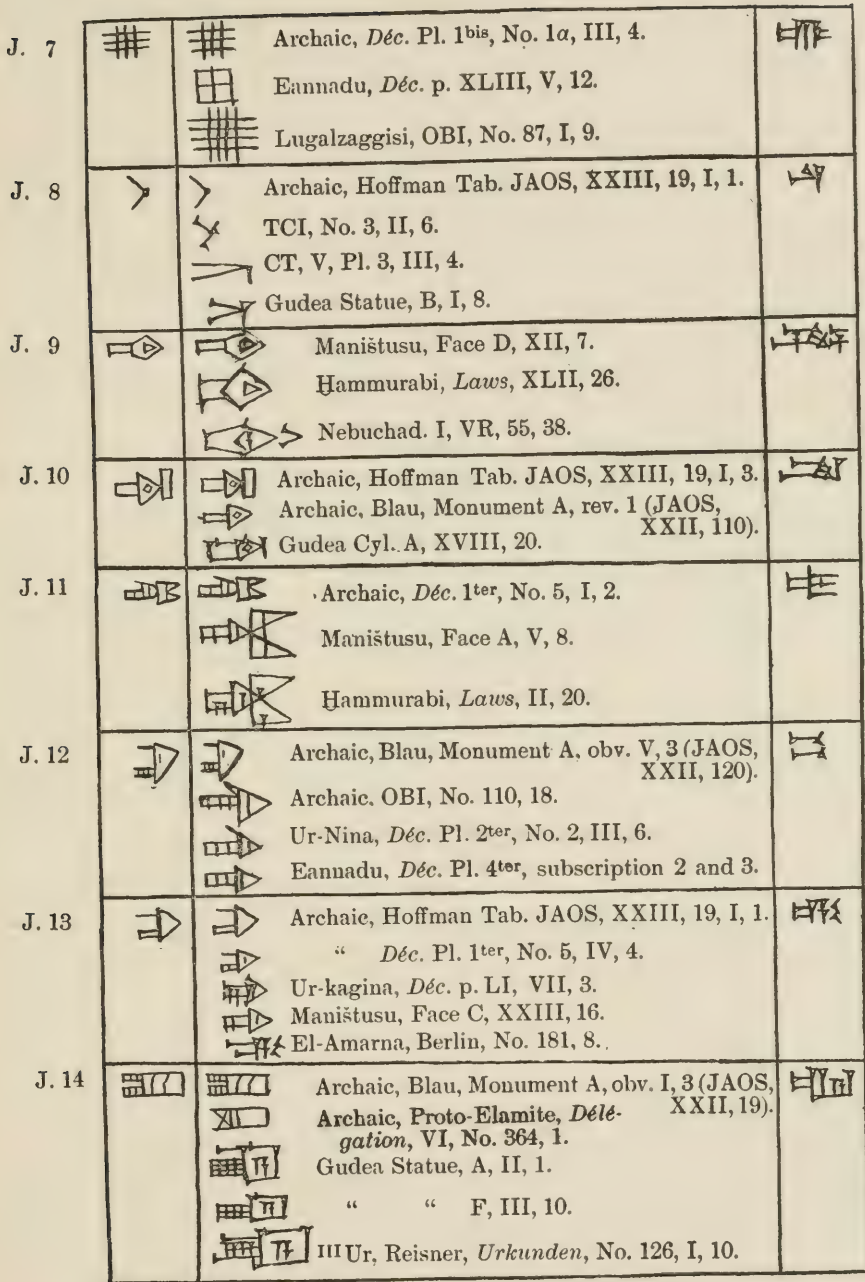 J. 7 Archaic, Déc. Pl. 1bis, No. 1a, III, 4.
Eannadu, Déc. p. XLIII, V, 12.
Lugalzaggisi, OBI, No. 87, I, 9.
J. 8 Archaic, Hoffman Tab. JAOS, XXIII, 19, I, 1.
TCI, No. 3, II, 6.
CT, V, Pl. 3, III, 4.
Gudea Statue, B, I, 8.
J. 9 Maništusu, Face D, XII, 7.
Ḫammurabi, Laws, XLII, 26.
Nebuchad. I, VR, 55, 38.
J. 10 Archaic, Hoffman Tab. JAOS, XXIII, 19, I, 3.
Archaic, Blau, Monument A, rev. 1 (JAOS,
XXII, 110).
Gudea Cyl. A, XVIII, 20.
J. 11 Archaic, Déc. 1ter, No. 5, I, 2.
Maništusu, Face A, V, 8.
Ḫammurabi, Laws, II, 20.
J. 12 Archaic, Blau, Monument A, obv. V, 3 (JAOS,
XXII, 120).
Archaic. OBI, No. 110, 18.
Ur-Nina, Déc. Pl. 2ter, No. 2, III, 6.
Eannadu, Déc. Pl. 4ter, subscription 2 and 3.
J. 13 Archaic, Hoffman Tab. JAOS, XXIII, 19, I, 1.
“ Déc. Pl. 1ter, No. 5, IV, 4.
Ur-kagina, Déc. p. LI, VII, 3.
Maništusu, Face C, XXIII, 16.
El-Amarna, Berlin, No. 181, 8.
J. 14 Archaic, Blau, Monument A, obv. I, 3 (JAOS,
XXII, 19).
Archaic, Proto-Elamite, Délé-
gation, VI, No. 364, 1.
Gudea Statue, A, II, 1.
“ “ F, III, 10.
III Ur, Reisner, Urkunden, No. 126, I, 10.